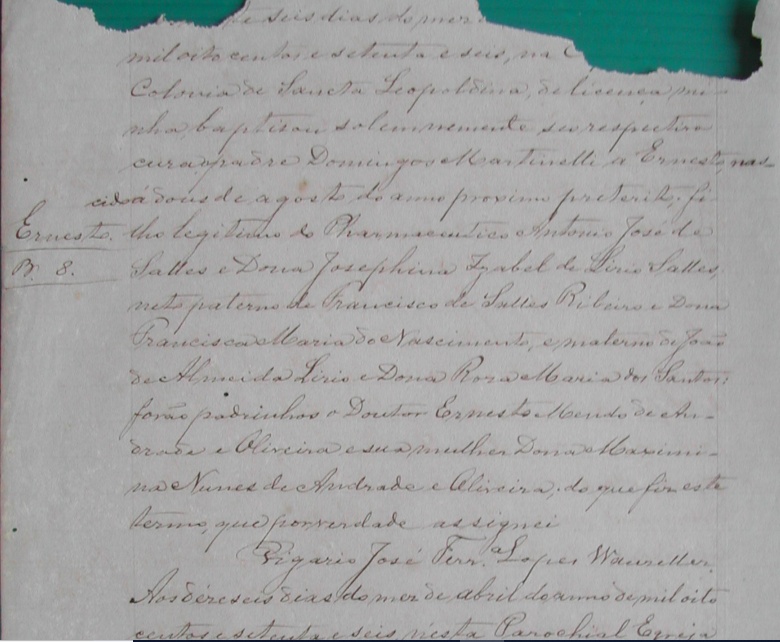 e seis dias do mez
mil oito centos e setenta e seis, na
Colonia de Sancta Leopoldina, de licença mi-
nha, baptisou solemnemente seo respectivo
cura o padre Domingos Martinelli a Ernesto, nas-
cido á dous de agosto do anno proximo preterito, fi-
Ernesto.
lho legitimo do Pharmaceutico Antonio José de
B. 8.
Salles e Dona Josephina Izabel de Lirio Salles,
neto paterno de Francisco de Salles Ribeiro e Dona
Francisca Maria do Nascimento, e materno de João
de Almeida Lirio e Dona Roza Maria dos Santos:
forão padrinhos o Doutor Ernesto Mendo de An-
drade e Oliveira e sua mulher Dona Maximi-
na Nunes de Andrade e Oliveira; do que fiz este
termo, que por verdade assignei
Vigario José Ferr.ª Lopes
Aos déseseis dias do mez de abril do anno de mil oito
centos e setenta e seis n'esta Parochial Egreja